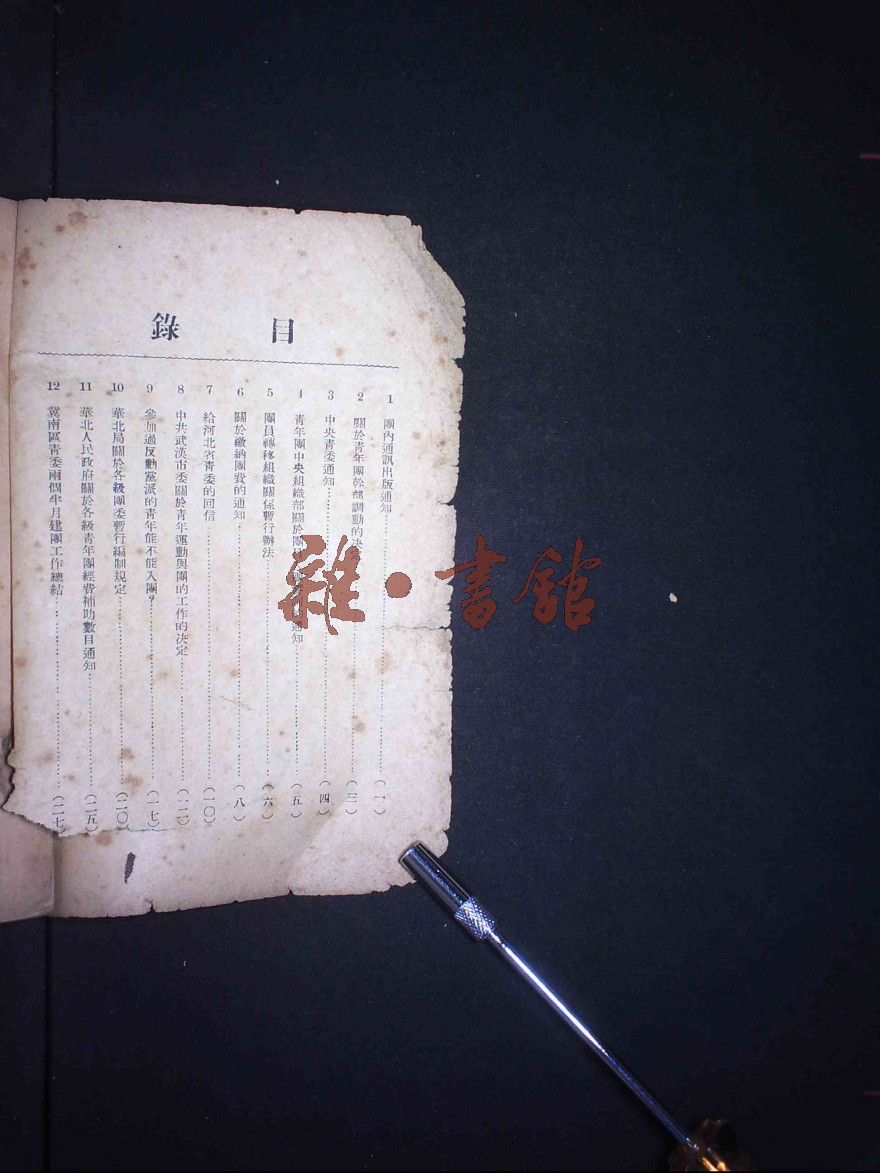 目錄
1 團內通訊出版通知……(一)
2 關於青年團幹部調動的决……(三)
3 中央青委通知……(四)
4 青年團中央組織部關於團……通知……(五)
5 團員轉移組織關係暫行辦法……(六)
6 關於繳納團費的通知……(八)
7 給河北省青委的回信……(一〇)
8 中共武漢市委關於青年運動與團的工作的决定……(一二)
9 參加過反動黨派的青年能不能入團？……(一七)
10 華北局關於各級團委暫行編制規定……(二〇)
11 華北人民政府關於各級青年團經費補助數目通知……(二五)
12 冀南區青委兩個半月建團工作總結……(二七)
雜·書館